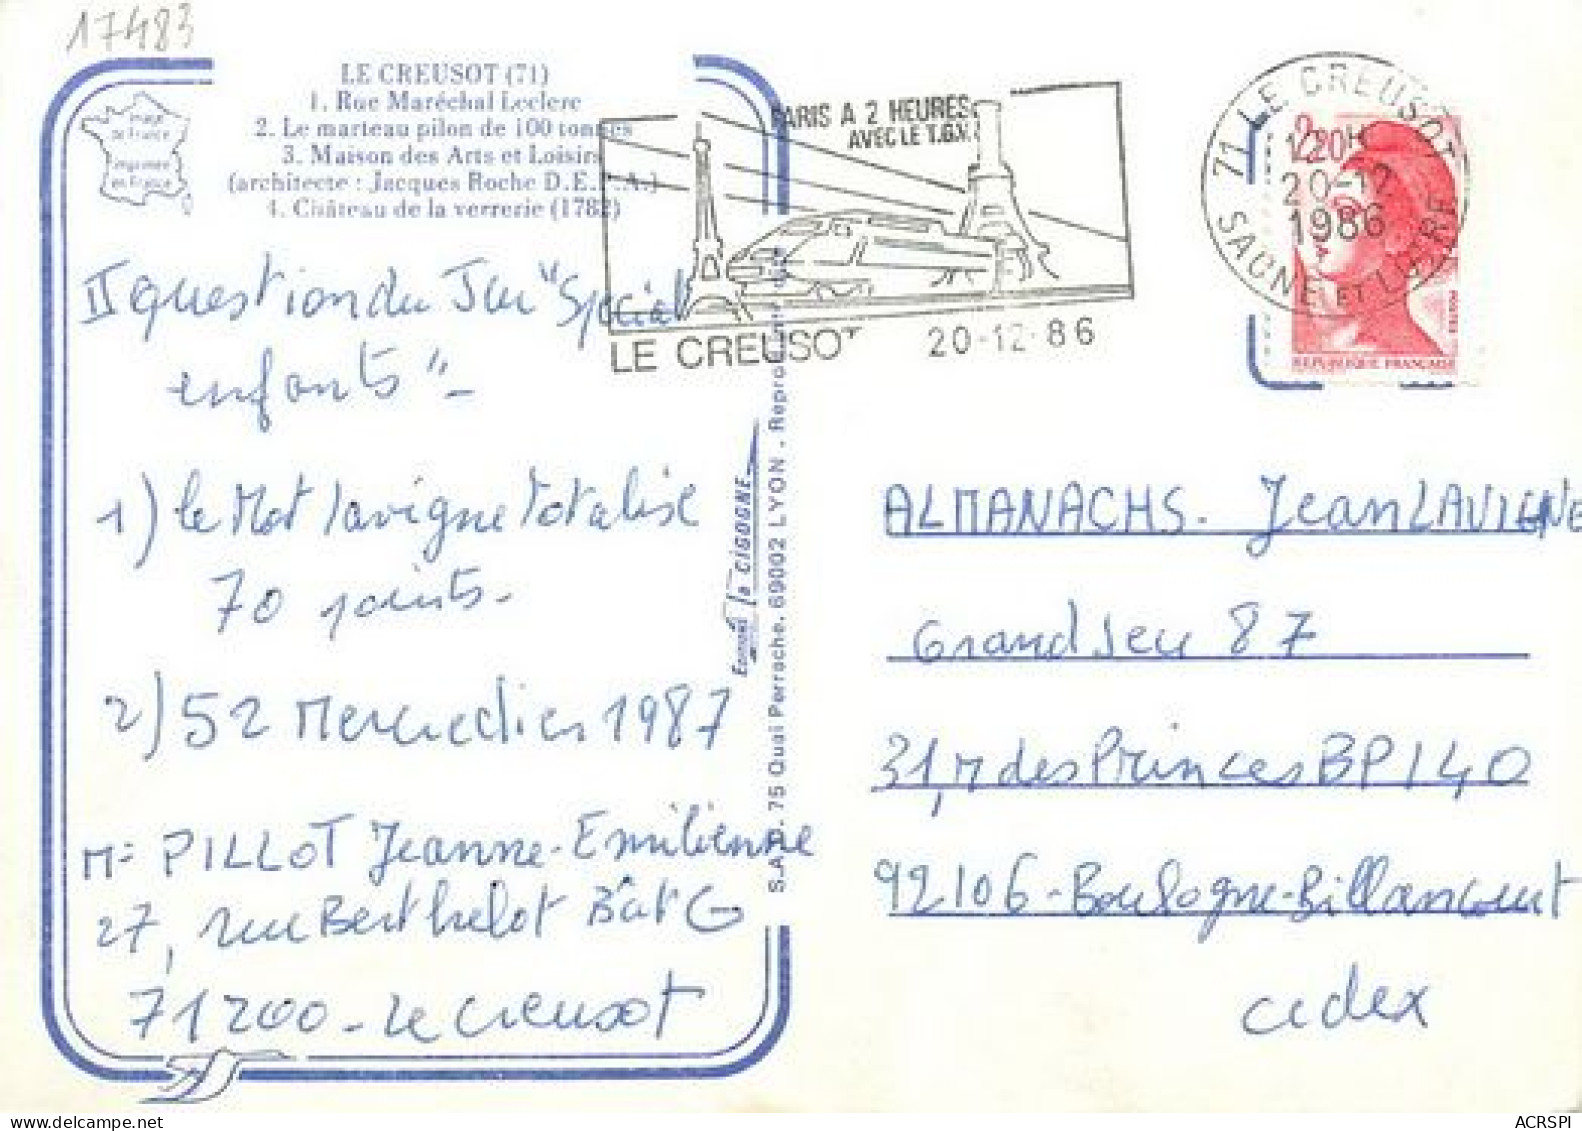 17483
LE CREUSOT (71)
1. Rue Maréchal Leclerc
2. Le marteau pilon de 100 tonnes
3. Maison des Arts et Loisirs
(architecte : Jacques Roche D.E.P.A.)
4. Château de la verrerie (1782)
Image de France
Imprimée en France
PARIS A 2 HEURES
AVEC LE T.G.V.
LE CREUSOT 20-12-86
71 LE CREUSOT
20-12
1986
SAONE ET LOIRE
2,20
REPUBLIQUE FRANÇAISE
II question du Jeu "Spécial
enfants" -
1) le Mot lavigne totalise
70 points -
2) 52 Mercredies 1987
Me PILLOT Jeanne-Emilienne
27, rue Berthelot Bât G
71200 - Le Creusot
EDITIONS la CIGOGNE
75 Quai Perrache, 69002 LYON . Repro
ALMANACHS - Jean LAVIGNE
Grand Jeu 87
31, r des Princes BP 140
92106 - Boulogne-Billancourt
cedex
ACRSPI